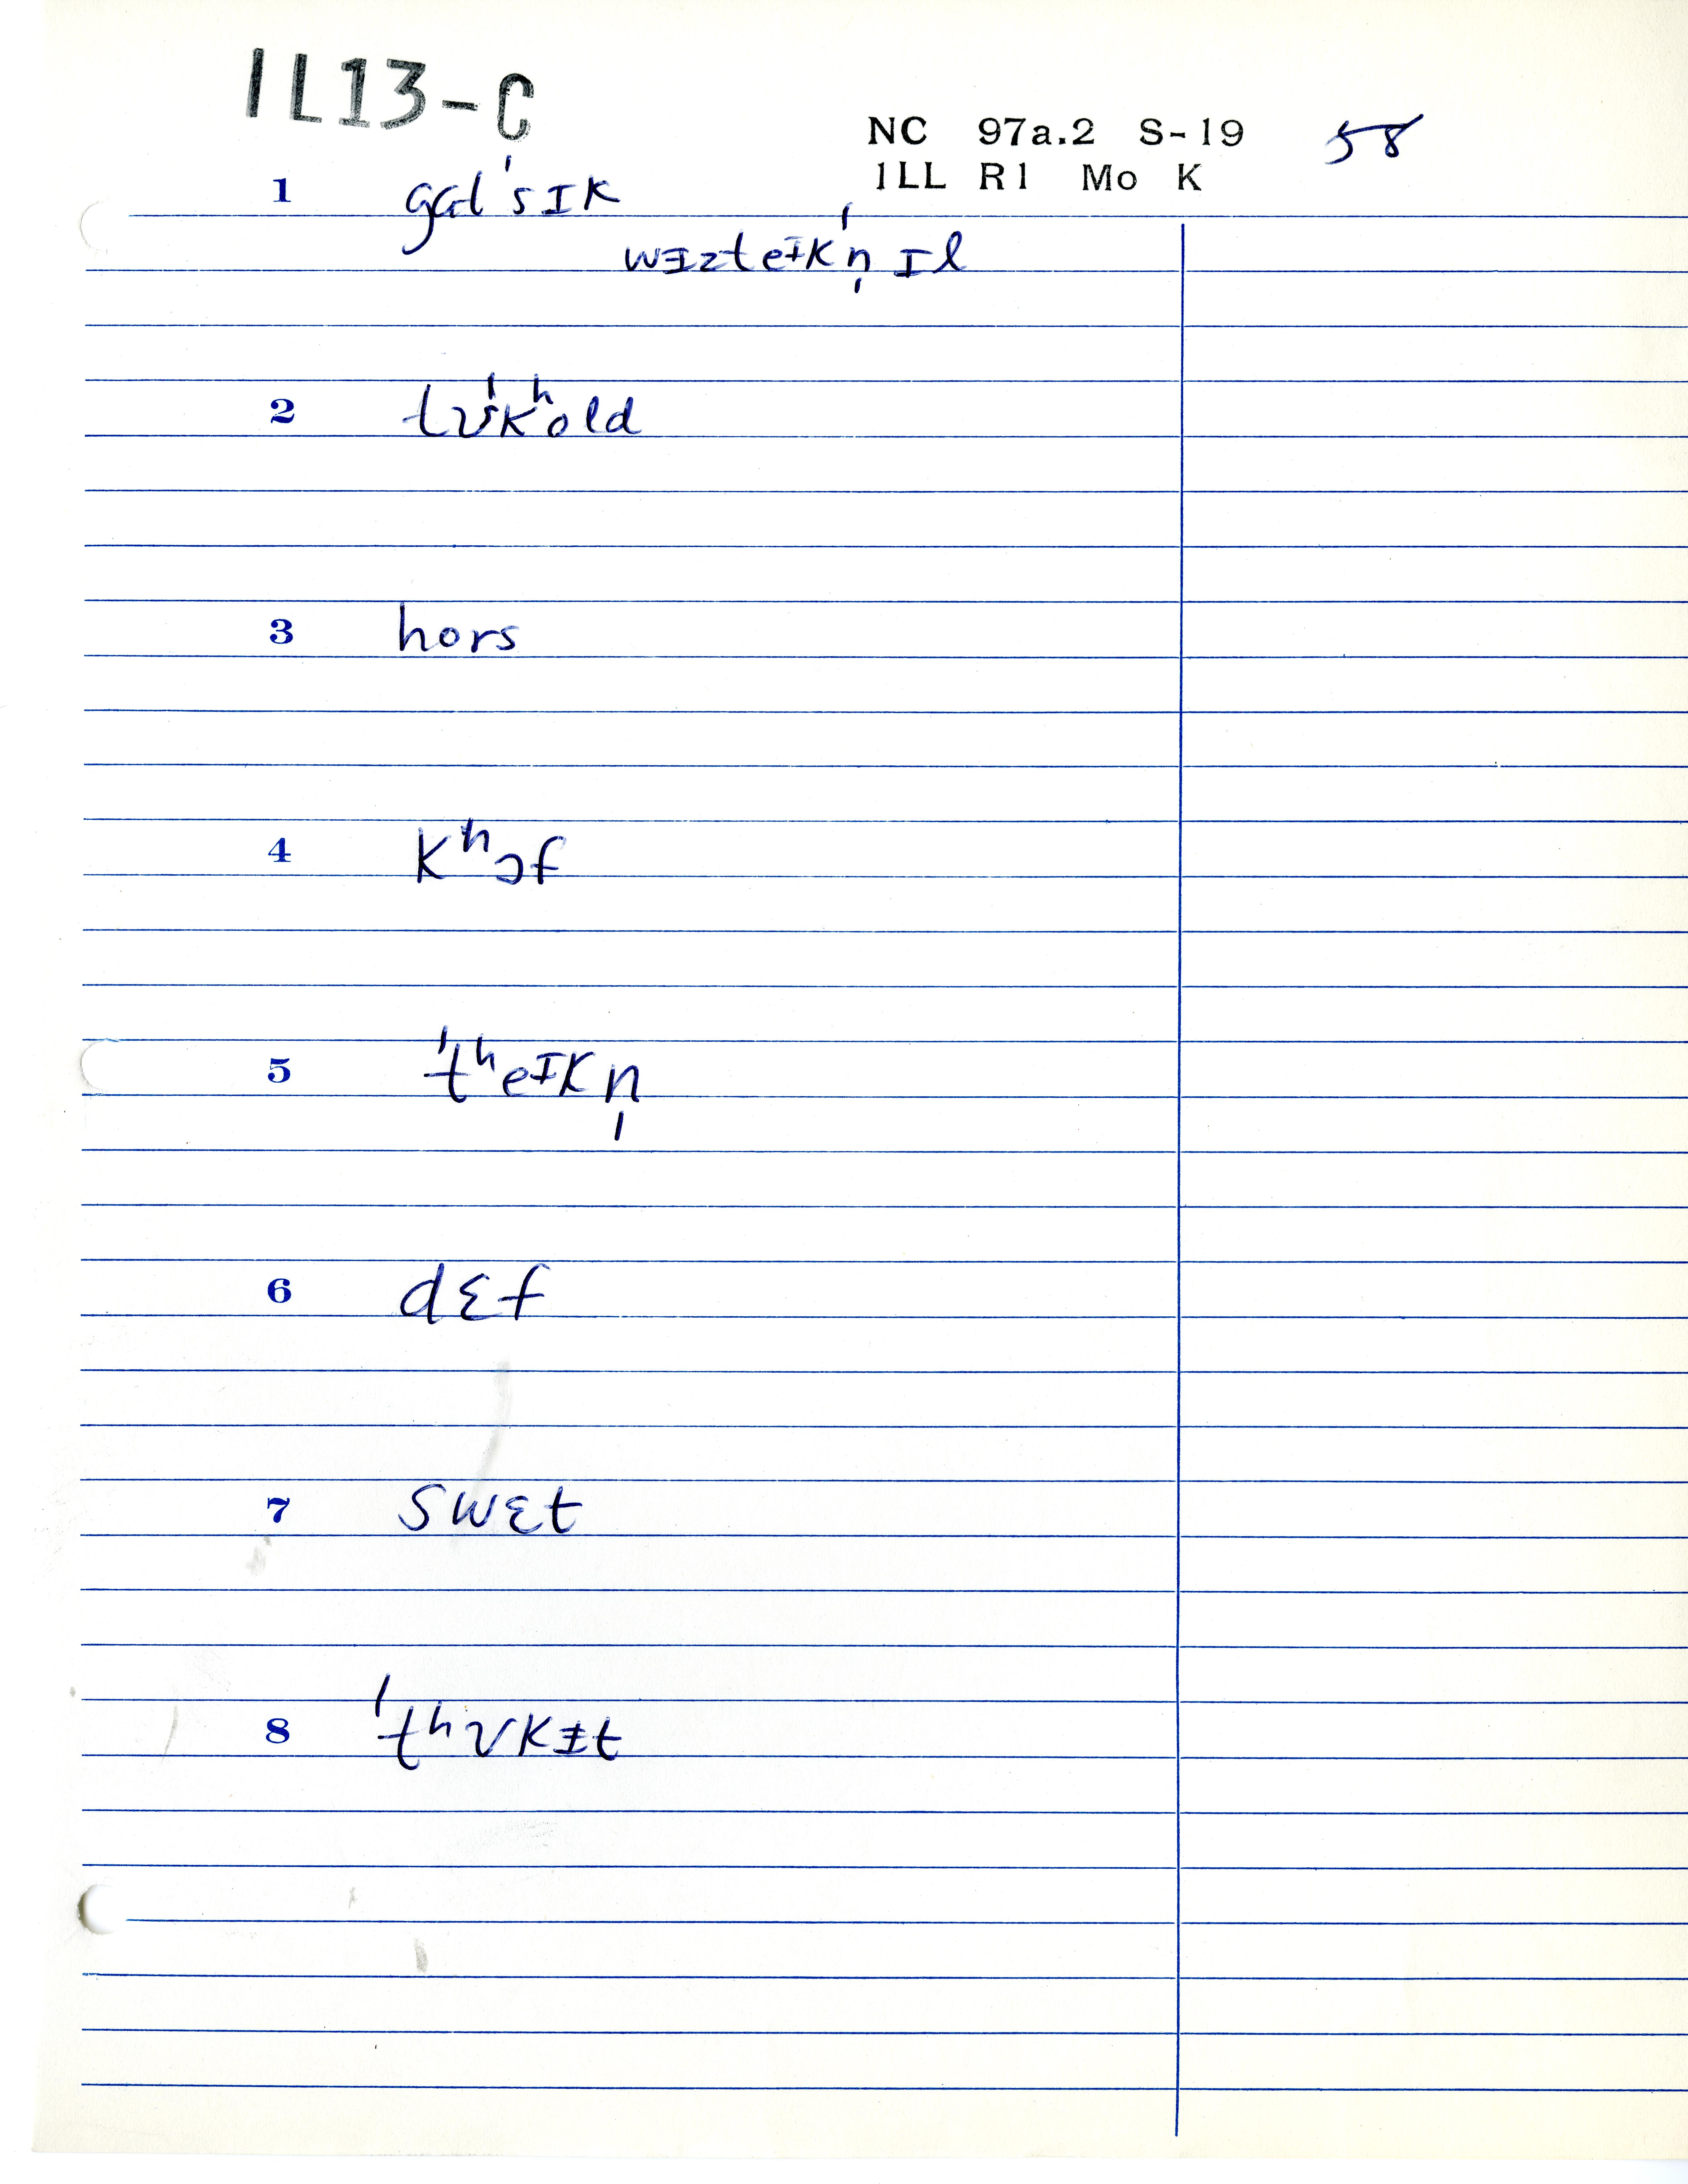 1L13-C
NC 97a.2 S-19 58
1LL R1 Mo K
1 gɑt'sɪk
wᵻzteᶦk'n̩ ɪl
2 tʊ'kʰold
3 hors
4 kʰɔf
5 'tʰeᶦkn̩
6 dɛf
7 swɛt
8 'tʰʊkᵻt